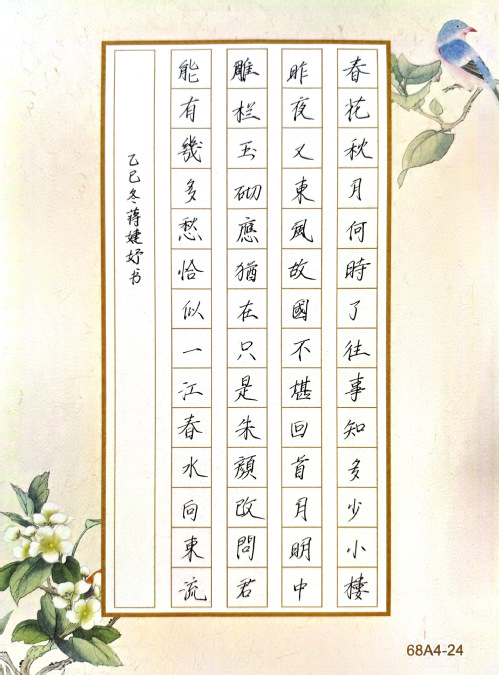 春花秋月何時了往事知多少小樓
昨夜又東風故國不堪回首月明中
雕栏玉砌應猶在只是朱顔改問君
能有幾多愁恰似一江春水向東流
乙巳冬蒋婕妤书
68A4-24